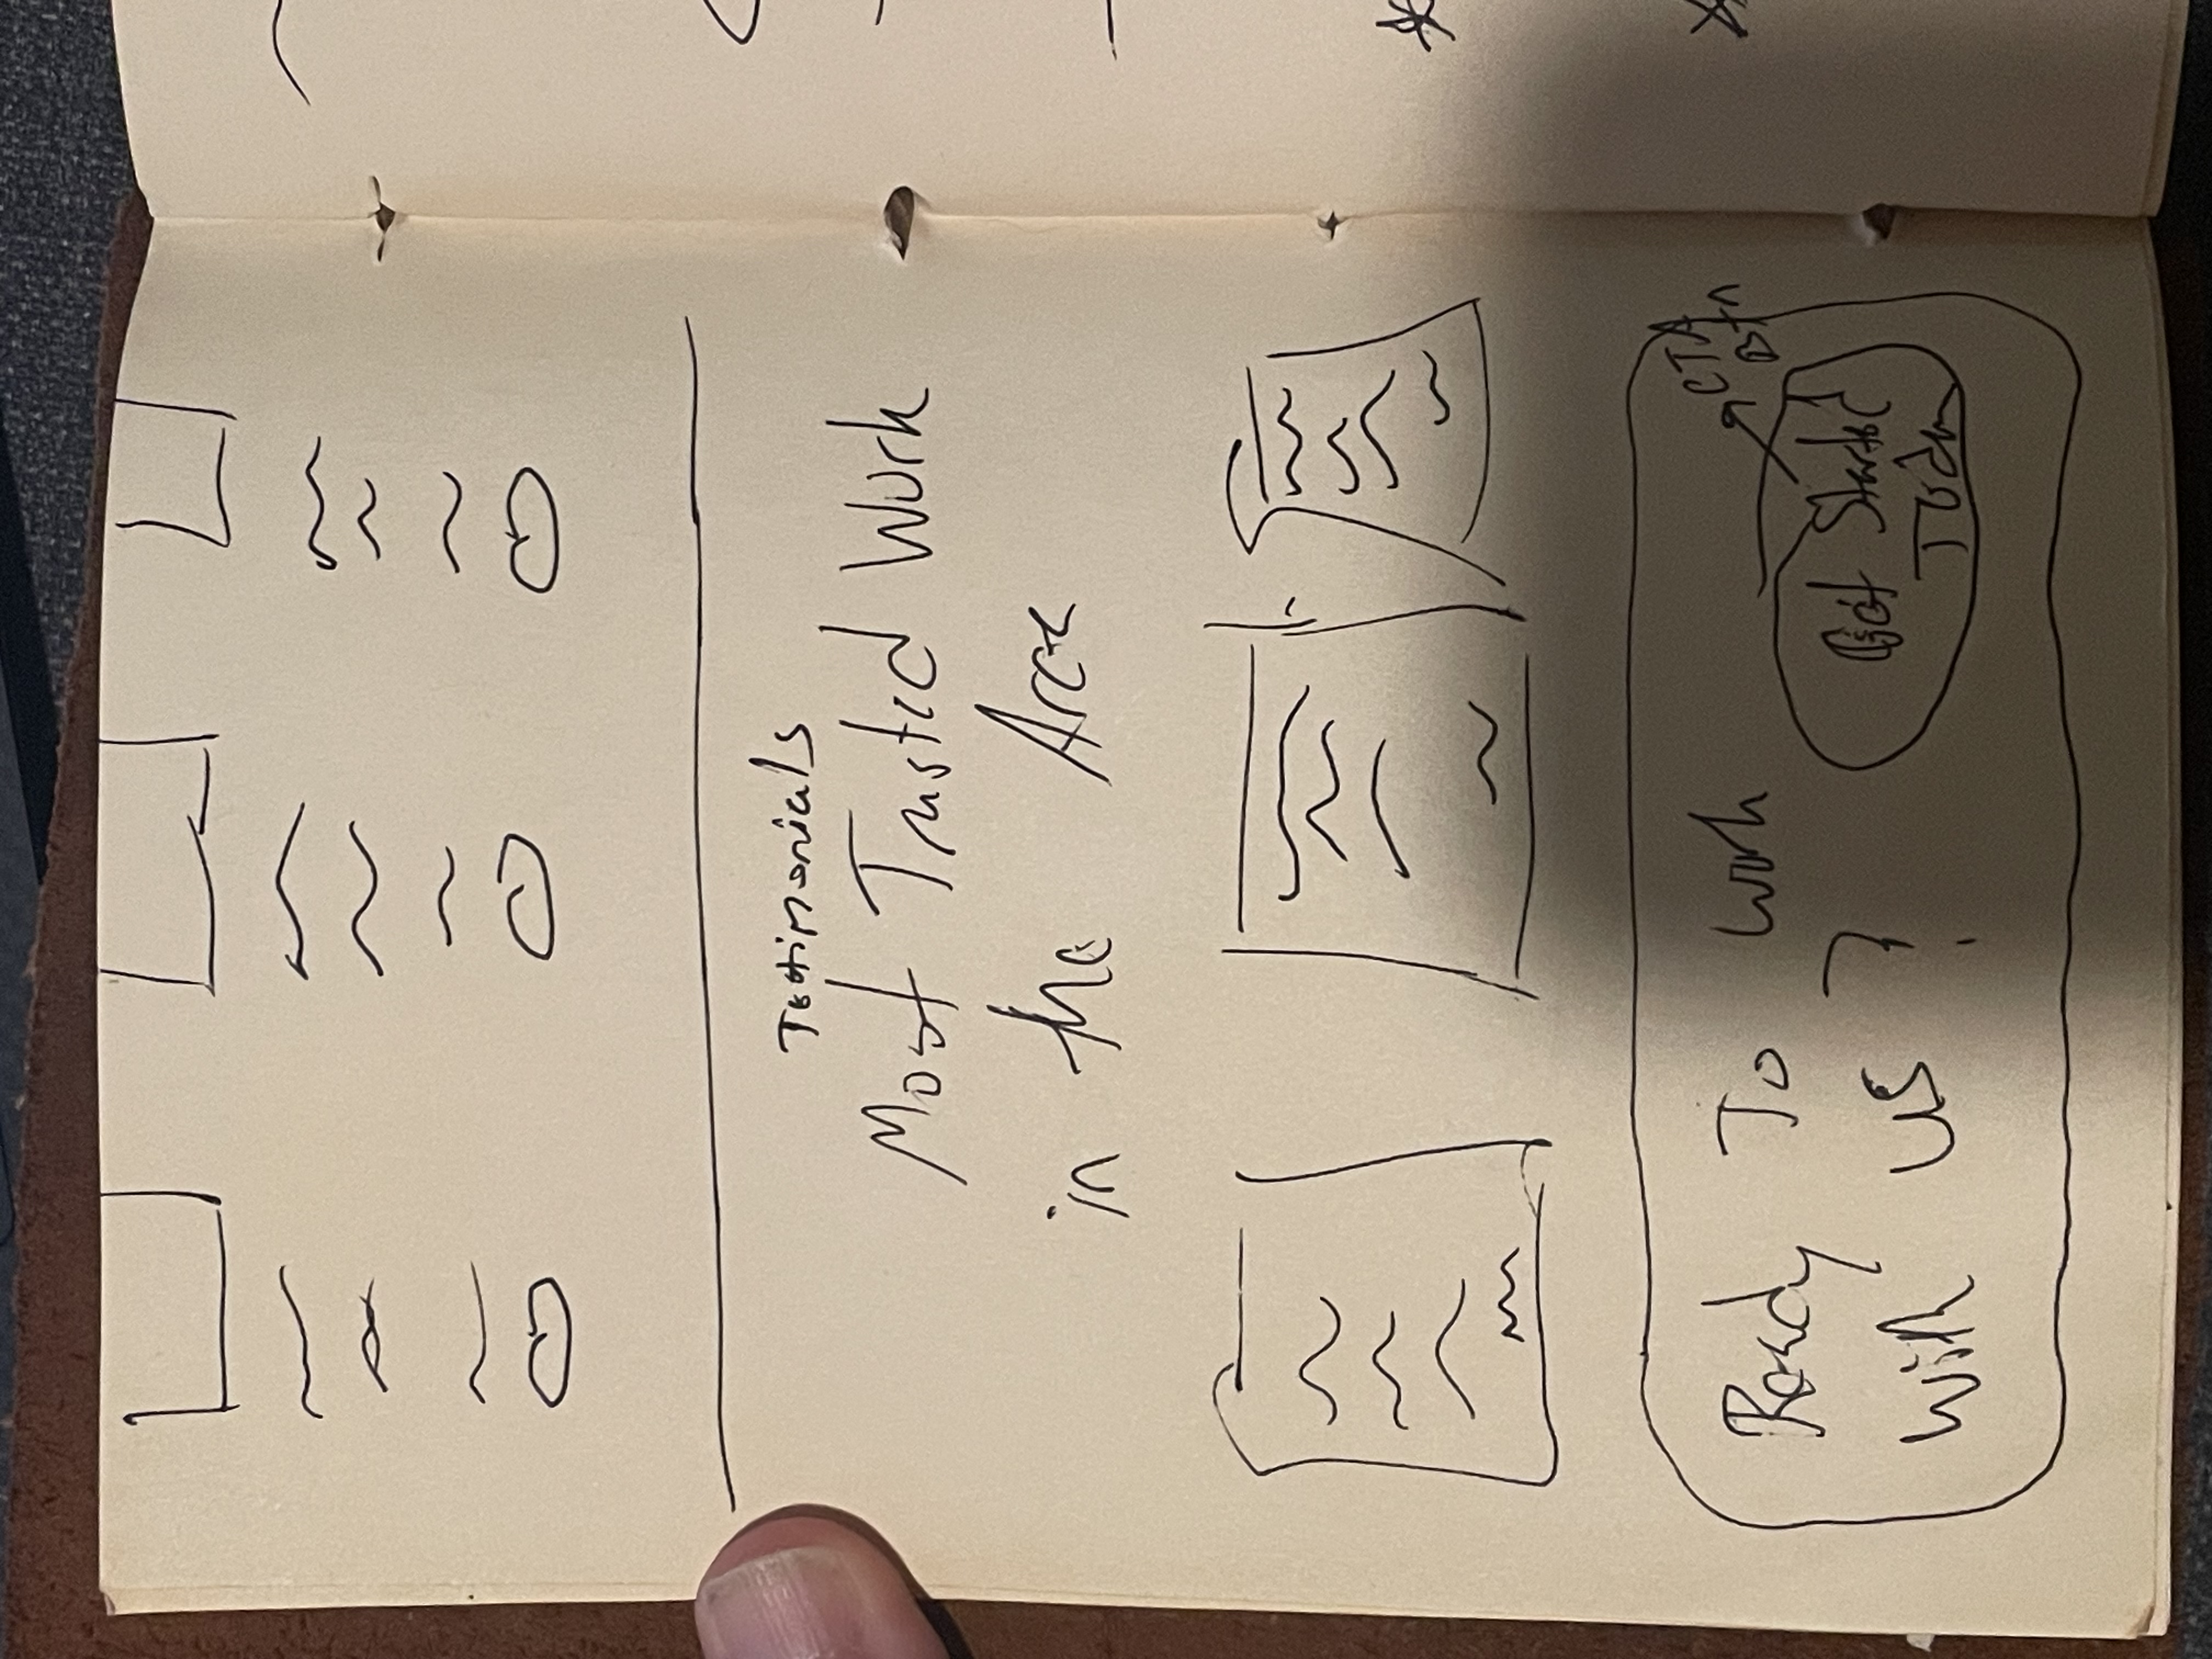 Testimonials
Most Trusted Work
in the Area
Ready To work
with us ?
CTA
Btn
Get Started
Today